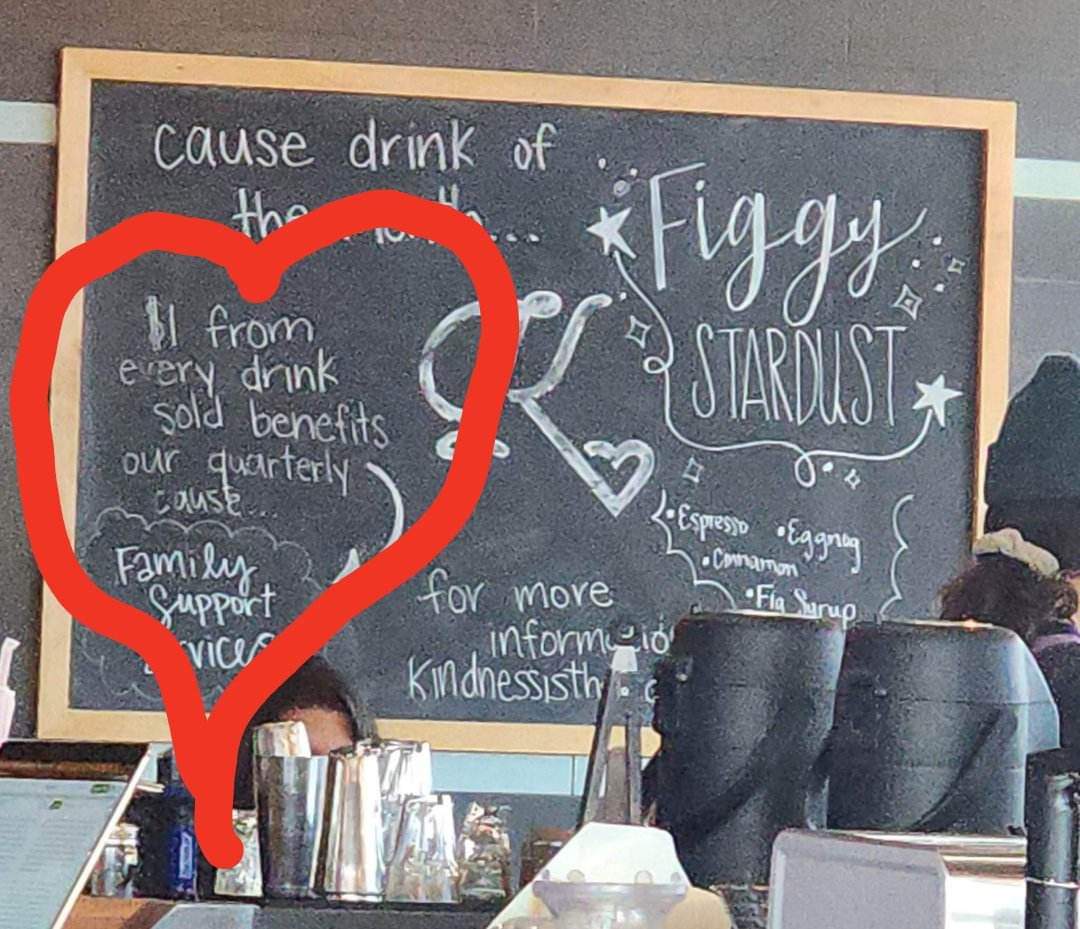 cause drink of
the
$1 from
every drink
sold benefits
our quarterly
cause...
Family
Support
Figgy
STARDUST
• Espresso • Eggnog
• Cinnamon
• Fig Syrup
for more
Kindnessisth